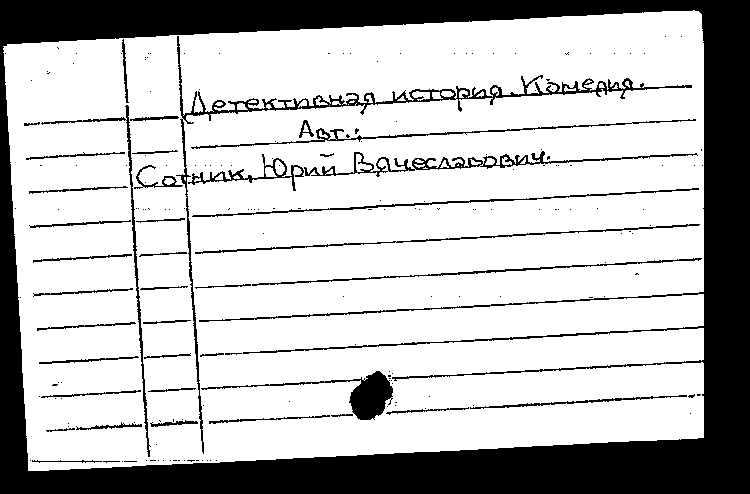 Детективная история. Комедия.
Авт.:
Сотник, Юрий Вячеславович.